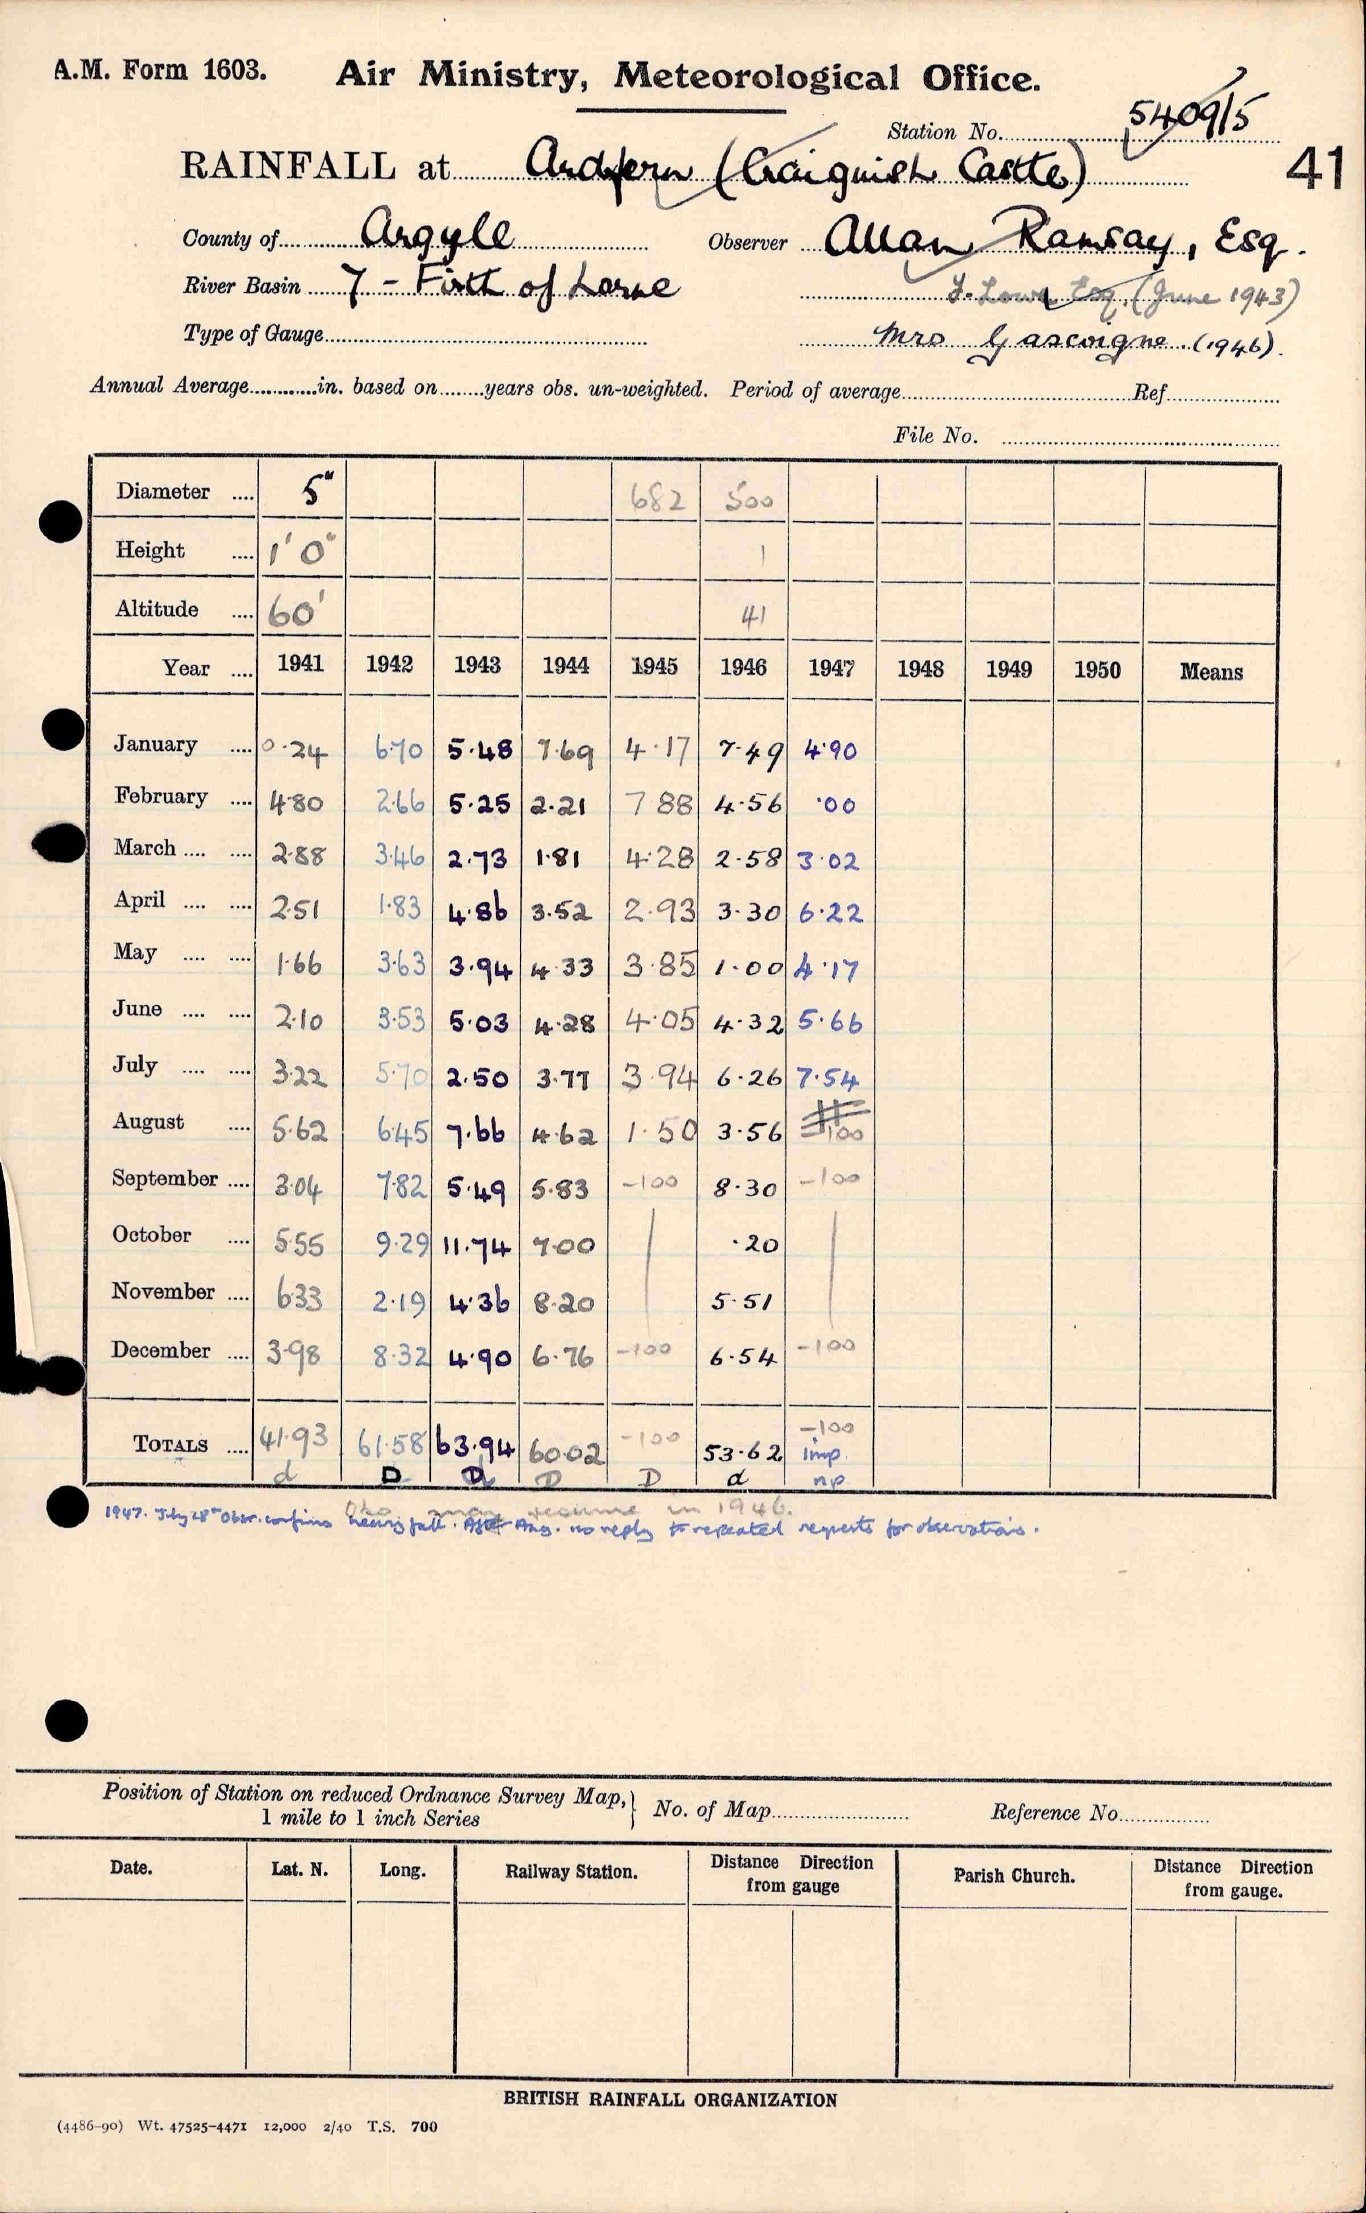 A.M. Form 1603. Air Ministry, Meteorological Office.
Station No. 5409/5
RAINFALL at Ardfern (Craignish Castle) 41
County of Argyle Observer Allan Ramsay, Esq.
River Basin 7 - Firth of Lorne F. Lowe Esq. (June 1943)
Type of Gauge Mrs Gascoigne (1946).
Annual Average in. based on years obs. un-weighted. Period of average Ref
File No.
Diameter 5" 682 500
Height 1' 0" 1
Altitude 60' 41
Year 1941 1942 1943 1944 1945 1946 1947 1948 1949 1950 Means
January 0.24 6.70 5.48 7.69 4.17 7.49 4.90
February 4.80 2.66 5.25 2.21 7.88 4.56 .00
March 2.88 3.46 2.73 1.81 4.28 2.58 3.02
April 2.51 1.83 4.86 3.52 2.93 3.30 6.22
May 1.66 3.63 3.94 4.33 3.85 1.00 4.17
June 2.10 3.53 5.03 4.28 4.05 4.32 5.66
July 3.22 5.70 2.50 3.77 3.94 6.26 7.54
August 5.62 6.45 7.66 4.62 1.50 3.56 -100
September 3.04 7.82 5.49 5.83 -100 8.30 -100
October 5.55 9.29 11.74 7.00 .20
November 6.33 2.19 4.36 8.20 5.51
December 3.98 8.32 4.90 6.76 -100 6.54 -100
TOTALS 41.93 61.58 63.94 60.02 -100 53.62 -100 imp.
d D D D D d np
Obs. may resume in 1946.
1947. July 28th Obsr. confirms heavy fall. After Aug. no reply to repeated requests for observations.
Position of Station on reduced Ordnance Survey Map, 1 mile to 1 inch Series No. of Map Reference No.
Date. Lat. N. Long. Railway Station. Distance Direction from gauge Parish Church. Distance Direction from gauge.
BRITISH RAINFALL ORGANIZATION
(4486-90) Wt. 47525-4471 12,000 2/40 T.S. 700